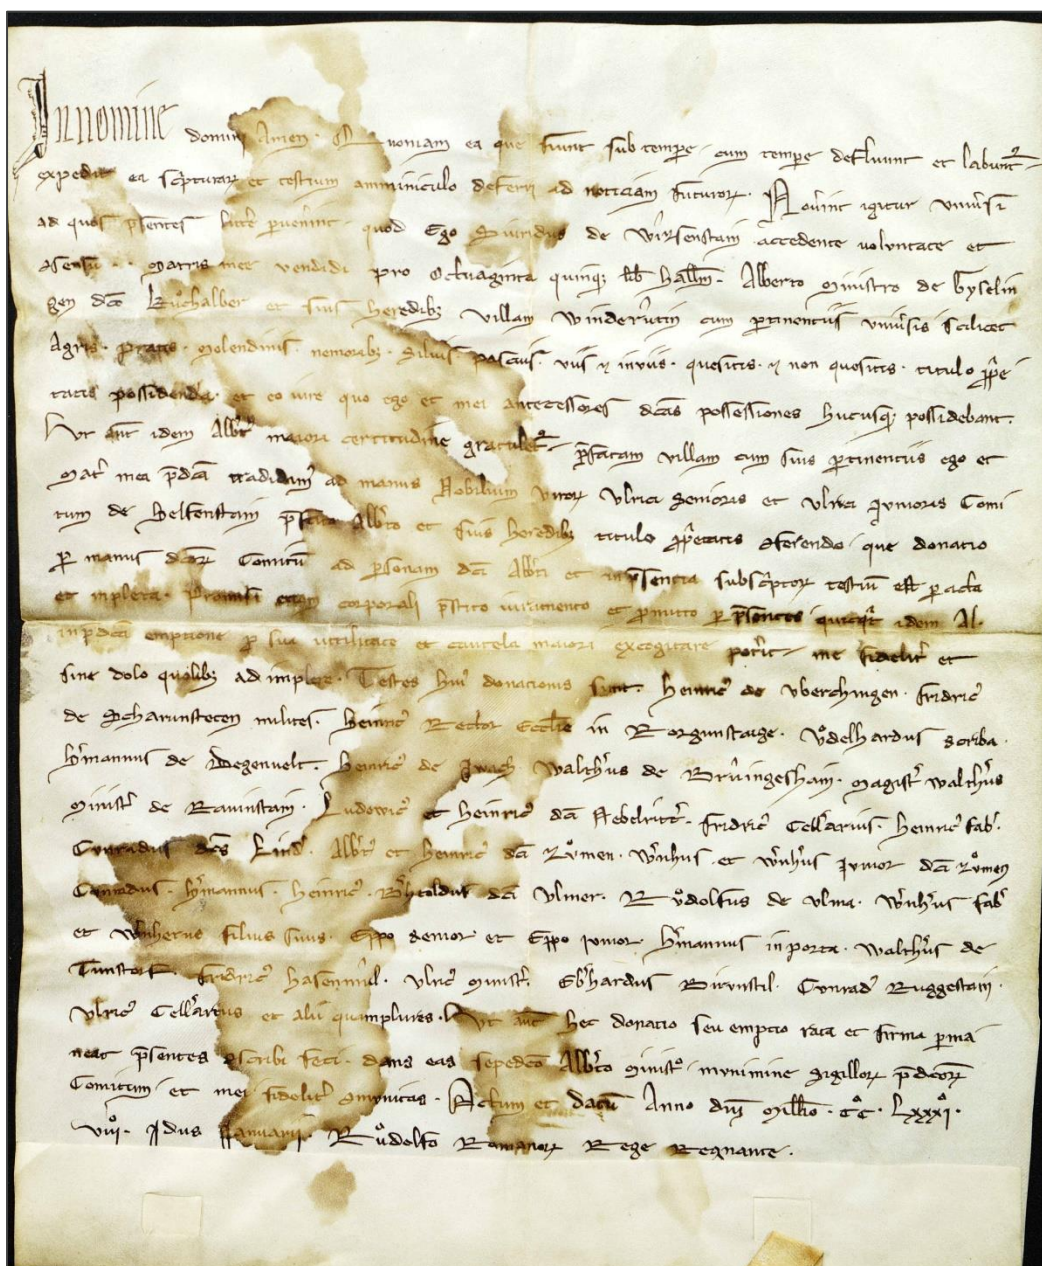 In nomine domini Amen. Quoniam ea que fiunt sub tempe cum tempe defluunt et labunt
expedit ea scpturar et testium amminiculo deferri ad noticiam futuror. Novint igitur univsi
ad quos psentes littere pvenint quod Ego de accedente voluntate et
osensu . . matris mee vendidi pro Octuaginta quinq lib hallm. Alberto Ministro de Gyselin
gen dco Buchalber et suis heredib villam Winderutin cum ptinentiis univsis scilicet
Agris. pratis. Molendinis. nemorib. Silvis. pascuis. viis et inviis. quesitis. et non quesitis. titulo ppe
tatis possidenda. et eo iure quo ego et mei antecessores dcas possessiones hucusq possidebant.
Ut aut idem Albt maiori certitudine gratulet pfatam villam cum suis ptinentiis ego et
Mat mea pdca tradidim ad manus Nobilium viror Ulrici senioris et Ulrici Junioris Comi
tum de Helfenstain pfato Albto et suis heredib titulo ppetatis oferendo. que donatio
p manus dcor Comitu ad psonam dci Albti et in psentia subscptor testiu est pacta
et inpleta. Promisi etiam corporali pstito iuramento et pmitto p psentes quicqd idem Al.
in pdca emptione p sua utilitate et cautela maiori excogitare potit me fidelit et
sine dolo quolib adimplere. Testes hui donationis sunt. Heinric de Uberchingen. Fridric
de Scharunstecen milites. Heinric Rector Ecclie in Rorgunstaige. Vdelhardus scriba.
Hmannus de Degenvelt. Heinric de Walthus de Magist Walthus
Minist de Ravinstain. Ludowic et Heinric dci Nebelritt. Fridric Cellarius. Heinric fab.
Cunradus dcs Kind. Albt et Heinric dci Wnhus et Wnhus Junior dci
Cunradus. Hmannus. Heinric. Bhtoldus dci Ulmer. Rudolfus de Ulma. Wnhus fab
et Wnherus filius suus. Eppo senior et Eppo iunior. Hmannus in porta. Walthus de
Tunstorf. Fridric Ulric minist. Ebhardus Cunrad Ruggestain.
Ulric Cellarius et alii quamplures. Ut aut hec donatio seu emptio rata et firma pma
neat psentes oscribi feci. dans eas sepedco Albto Minist. munimine sigillor pdcor
Comitum et mei fidelit omunitas. Actum et datu Anno dni Millio. CC. Lxxxi.
viii. Idus Januarii. Rudolfo Romanor Rege Regnante.